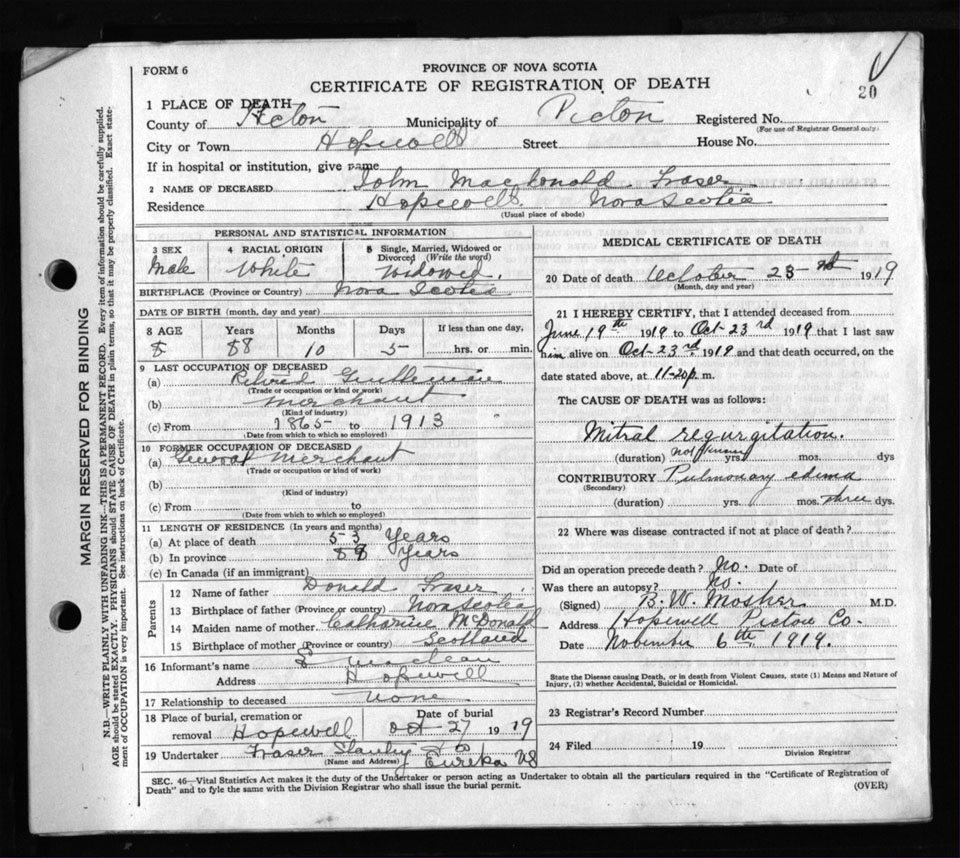 FORM 6
PROVINCE OF NOVA SCOTIA
CERTIFICATE OF REGISTRATION OF DEATH
20
1 PLACE OF DEATH
County of Picton Municipality of Picton Registered No.
(For use of Registrar General only)
City or Town Hopewell Street House No.
If in hospital or institution, give name
2 NAME OF DECEASED John MacDonald Fraser
Residence Hopewell Nova Scotia
(Usual place of abode)
PERSONAL AND STATISTICAL INFORMATION
3 SEX 4 RACIAL ORIGIN 5 Single, Married, Widowed or Divorced (Write the word)
Male White Widowed.
BIRTHPLACE (Province or Country) Nova Scotia
DATE OF BIRTH (month, day and year)
8 AGE Years Months Days If less than one day,
88 10 5 hrs. or min.
9 LAST OCCUPATION OF DECEASED
(a) Retired
(Trade or occupation or kind or work)
(b) Merchant
(Kind of industry)
(c) From 1865 to 1913
(Date from which to which so employed)
10 FORMER OCCUPATION OF DECEASED
(a) General Merchant
(Trade or occupation or kind of work)
(b)
(Kind of industry)
(c) From to
(Date from which to which so employed)
11 LENGTH OF RESIDENCE (In years and months)
(a) At place of death 53 Years
(b) In province 88 Years
(c) In Canada (if an immigrant)
Parents
12 Name of father Donald Fraser
13 Birthplace of father (Province or country) Nova Scotia
14 Maiden name of mother Catharine McDonald
15 Birthplace of mother (Province or country) Scotland
16 Informant's name Maclean
Address Hopewell
17 Relationship to deceased None
18 Place of burial, cremation or removal Hopewell Date of burial Oct 27 1919
19 Undertaker Fraser Eureka NS
(Name and Address)
MEDICAL CERTIFICATE OF DEATH
20 Date of death October 23 1919
(Month, day and year)
21 I HEREBY CERTIFY, that I attended deceased from
June 19th 1919 to Oct-23rd 1919 that I last saw
him alive on Oct-23rd 1919 and that death occurred, on the
date stated above, at 11-20 p. m.
The CAUSE OF DEATH was as follows:
Mitral regurgitation.
(duration) yrs. mos. dys
CONTRIBUTORY Pulmonary edema
(Secondary)
(duration) yrs. mos. three dys.
22 Where was disease contracted if not at place of death?
Did an operation precede death? No. Date of
Was there an autopsy? No.
(Signed) B. W. Mosher M.D.
Address Hopewell Picton Co.
Date November 6th 1919.
State the Disease causing Death, or in death from Violent Causes, state (1) Means and Nature of
Injury, (2) whether Accidental, Suicidal or Homicidal.
23 Registrar's Record Number
24 Filed 19
Division Registrar
SEC. 46—Vital Statistics Act makes it the duty of the Undertaker or person acting as Undertaker to obtain all the particulars required in the "Certificate of Registration of
Death" and to fyle the same with the Division Registrar who shall issue the burial permit. (OVER)
MARGIN RESERVED FOR BINDING
N.B.—WRITE PLAINLY WITH UNFADING INK—THIS IS A PERMANENT RECORD. Every item of information should be carefully supplied.
AGE should be stated EXACTLY. PHYSICIANS should STATE CAUSE OF DEATH in plain terms, so that it may be properly classified. Exact state-
ment of OCCUPATION is very important. See instructions on back of Certificate.